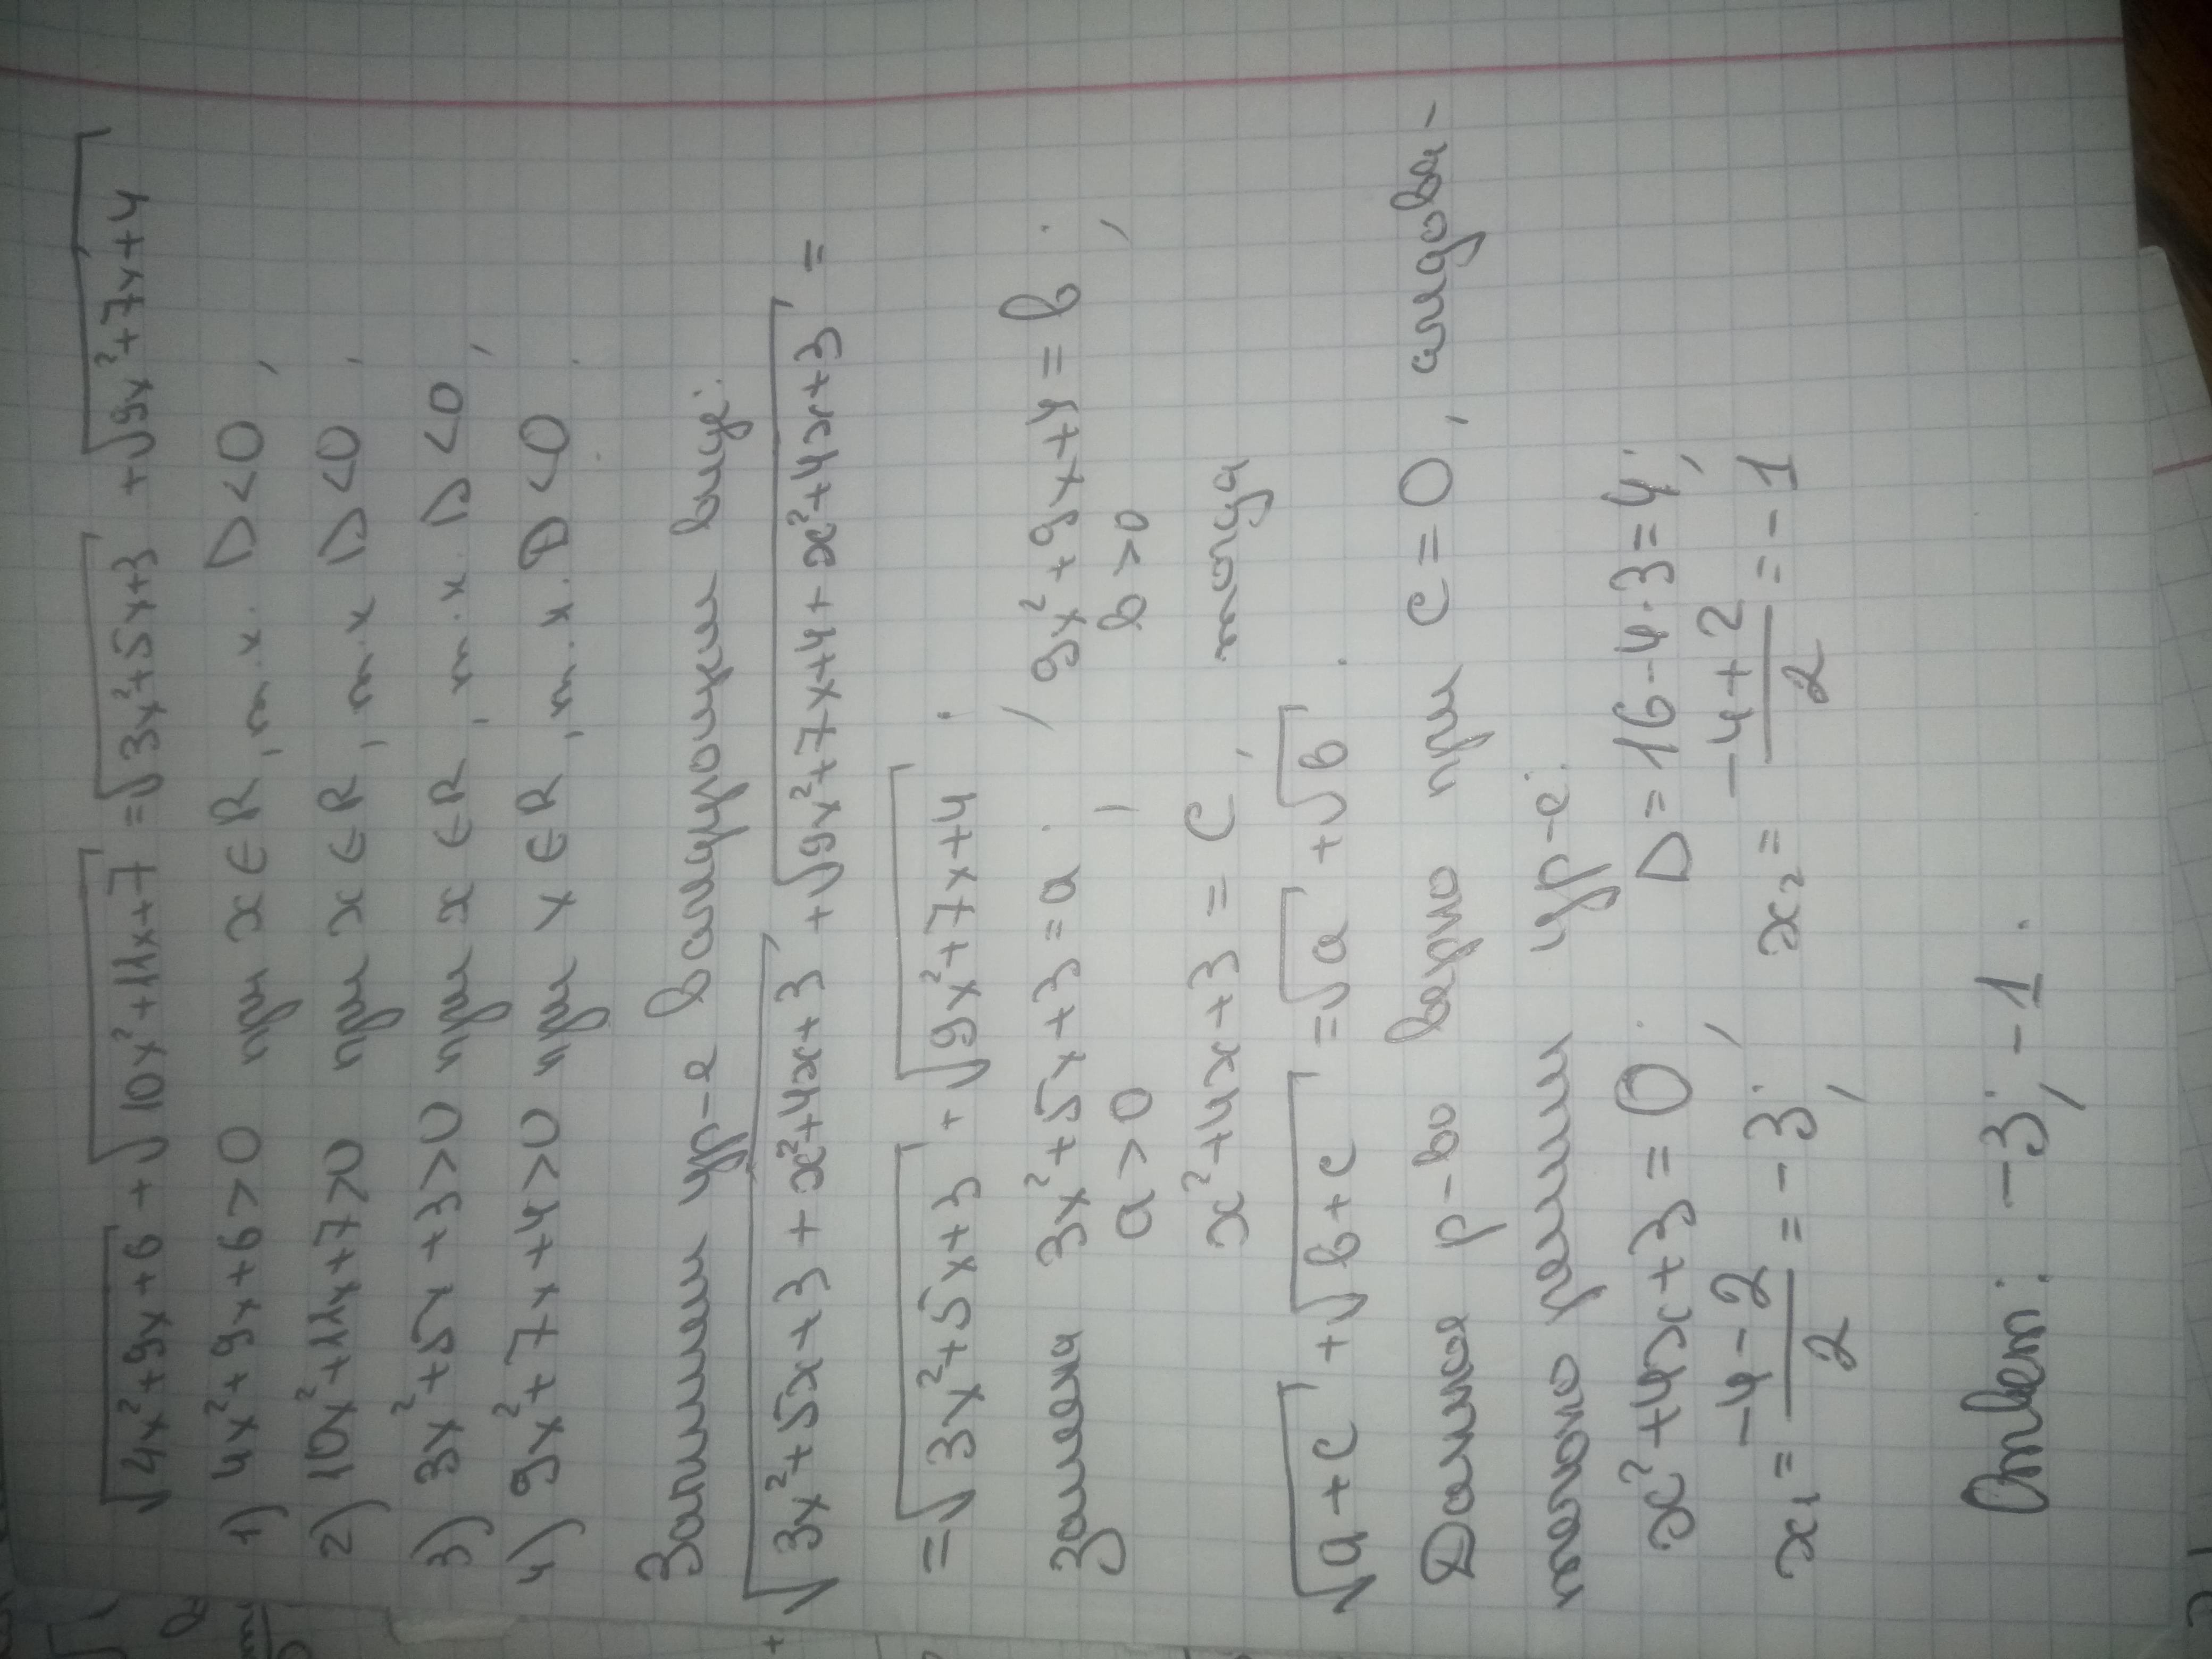 √4x²+9x+6 + √10x²+11x+7 = √3x²+5x+3 + √9x²+7x+4
1) 4x²+9x+6>0 при x∈R, т.к. D<0,
2) 10x²+11x+7>0 при x∈R, т.к D<0,
3) 3x²+5x+3>0 при x∈R, т.к. D<0,
4) 9x²+7x+4>0 при x∈R, т.к. D<0.
Запишем ур-е в следующем виде:
√3x²+5x+3+x²+4x+3 + √9x²+7x+4+x²+4x+3 =
= √3x²+5x+3 + √9x²+7x+4 ;
замена 3x²+5x+3=a; 9x²+9x+4=b;
a>0 b>0
x²+4x+3=c, тогда
√a+c + √b+c = √a + √b.
Данное р-во верно при c=0, следова-
тельно решим ур-е:
x²+4x+3=0; D=16-4·3=4;
x₁= -4-2/2 =-3; x₂= -4+2/2 =-1
Ответ: -3; -1.